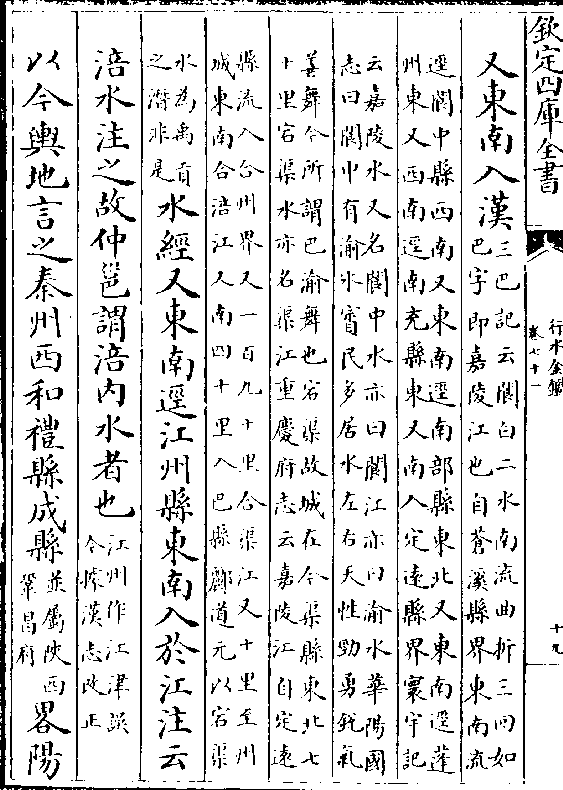 欽定四庫全書
行水金鑑
卷七十一
十九
又東南入漢三巴記云閬白二水南流曲折三回如
巴字即嘉陵江也自蒼溪縣界東南流
逕閬中縣西南又東南逕南部縣東北又東南逕蓬
州東又西南逕南充縣東又南入定遠縣界寰宇記
云嘉陵水又名閬中水亦曰閬江亦曰渝水華陽國
志曰閬中有渝水賨民多居水左右天性勁勇銳氣
善舞今所謂巴渝舞也宕渠故城在今渠縣東北七
十里宕渠水亦名渠江重慶府志云嘉陵江自定遠
縣流入合州界又一百九十里合渠江又十里至州
城東南合涪江又南四十里入巴縣酈道元以宕渠
水為禹貢
之潛非是
水經又東南逕江州縣東南入於江注云
涪水注之故仲邕謂涪內水者也江州作江津誤
今據漢志改正
以今輿地言之秦州西和禮縣成縣並屬陝西
鞏昌府
畧陽